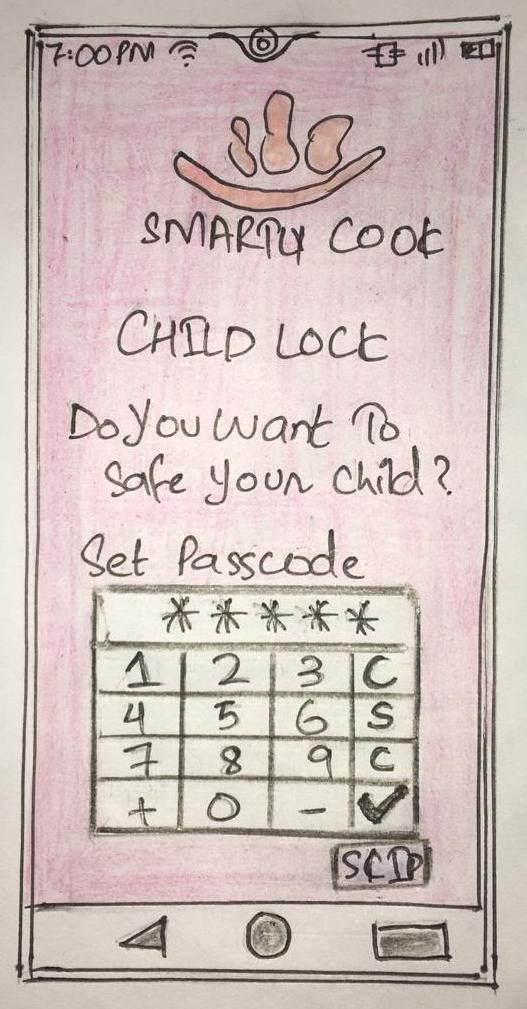 7:00PM
SMARTLY COOK
CHILD LOCK
Do you want To
Safe your child?
Set Passcode
* * * * *
1 2 3 C
4 5 6 S
7 8 9 C
+ 0 - ✓
SKIP